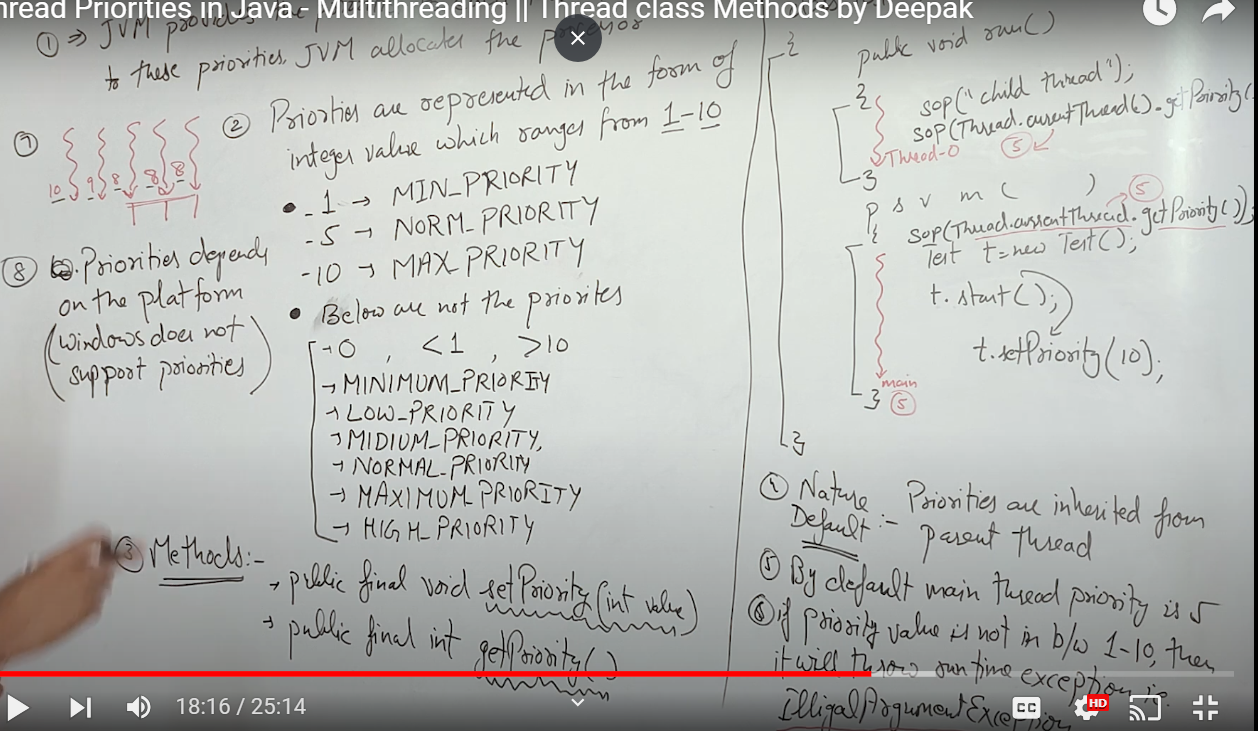 hread Priorities in Java - Multithreading || Thread class Methods by Deepak
① ⇒ JVM provides the
to these priorities. JVM allocates the processor
② Priorties are represented in the form of
integer value which ranges from 1-10
• - 1 → MIN_PRIORITY
- 5 → NORM_PRIORITY
- 10 → MAX_PRIORITY
• Below are not the priorites
→ 0 , <1 , >10
→ MINIMUM_PRIORITY
→ LOW_PRIORITY
→ MIDIUM_PRIORITY,
→ NORMAL_PRIORITY
→ MAXIMUM_PRIORITY
→ HIGH_PRIORITY
⑦
10 9 8 8 8
⑧ Priorities depends
on the platform
(windows does not
support priorities)
③ Methods:-
→ public final void setPriority(int value)
→ public final int getPriority()
{
public void run()
{
sop("child thread");
sop(Thread.currentThread().getPriority(
Thread-0 ⑤
}
p s v m ( )
⑤
{ sop(Thread.currentThread.getPriority());
Test t=new Test();
t.start();
t.setPriority(10);
main
} ⑤
}
④ Nature Priorities are inherited from
Default:- parent thread
⑤ By default main thread priority is 5
⑥ if priority value is not in b/w 1-10, then
it will throw run time exception ie.
IlligalArgumentException
18:16 / 25:14
CC
HD